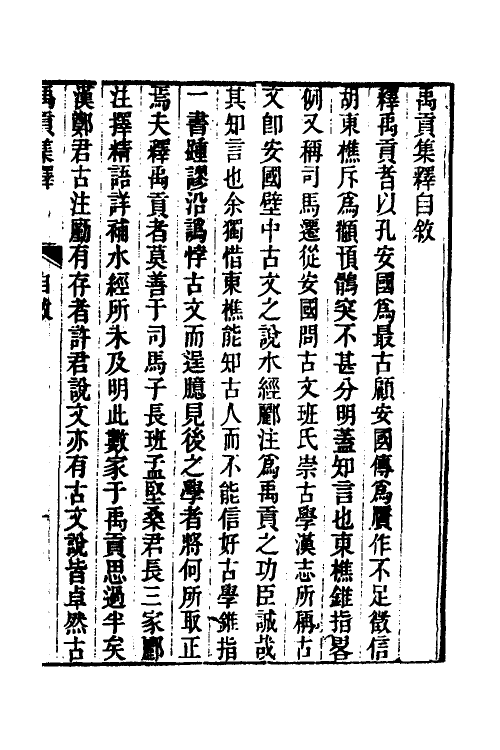 禹貢集釋自敘
釋禹貢者以孔安國爲最古顧安國傳爲贋作不足徵信
胡東樵斥爲顢頇鶻突不甚分明蓋知言也東樵錐指畧
例又稱司馬遷從安國問古文班氏崇古學漢志所稱古
文卽安國壁中古文之說水經酈注爲禹貢之功臣誠哉
其知言也余獨惜東樵能知古人而不能信好古學錐指
一書踵謬沿譌悖古文而逞臆見後之學者將何所取正
焉夫釋禹貢者莫善于司馬子長班孟堅桑君長三家酈
注擇精語詳補水經所未及明此數家于禹貢思過半矣
漢鄭君古注勵有存者許君說文亦有古文說皆卓然古
禹貢集釋
自敘
一